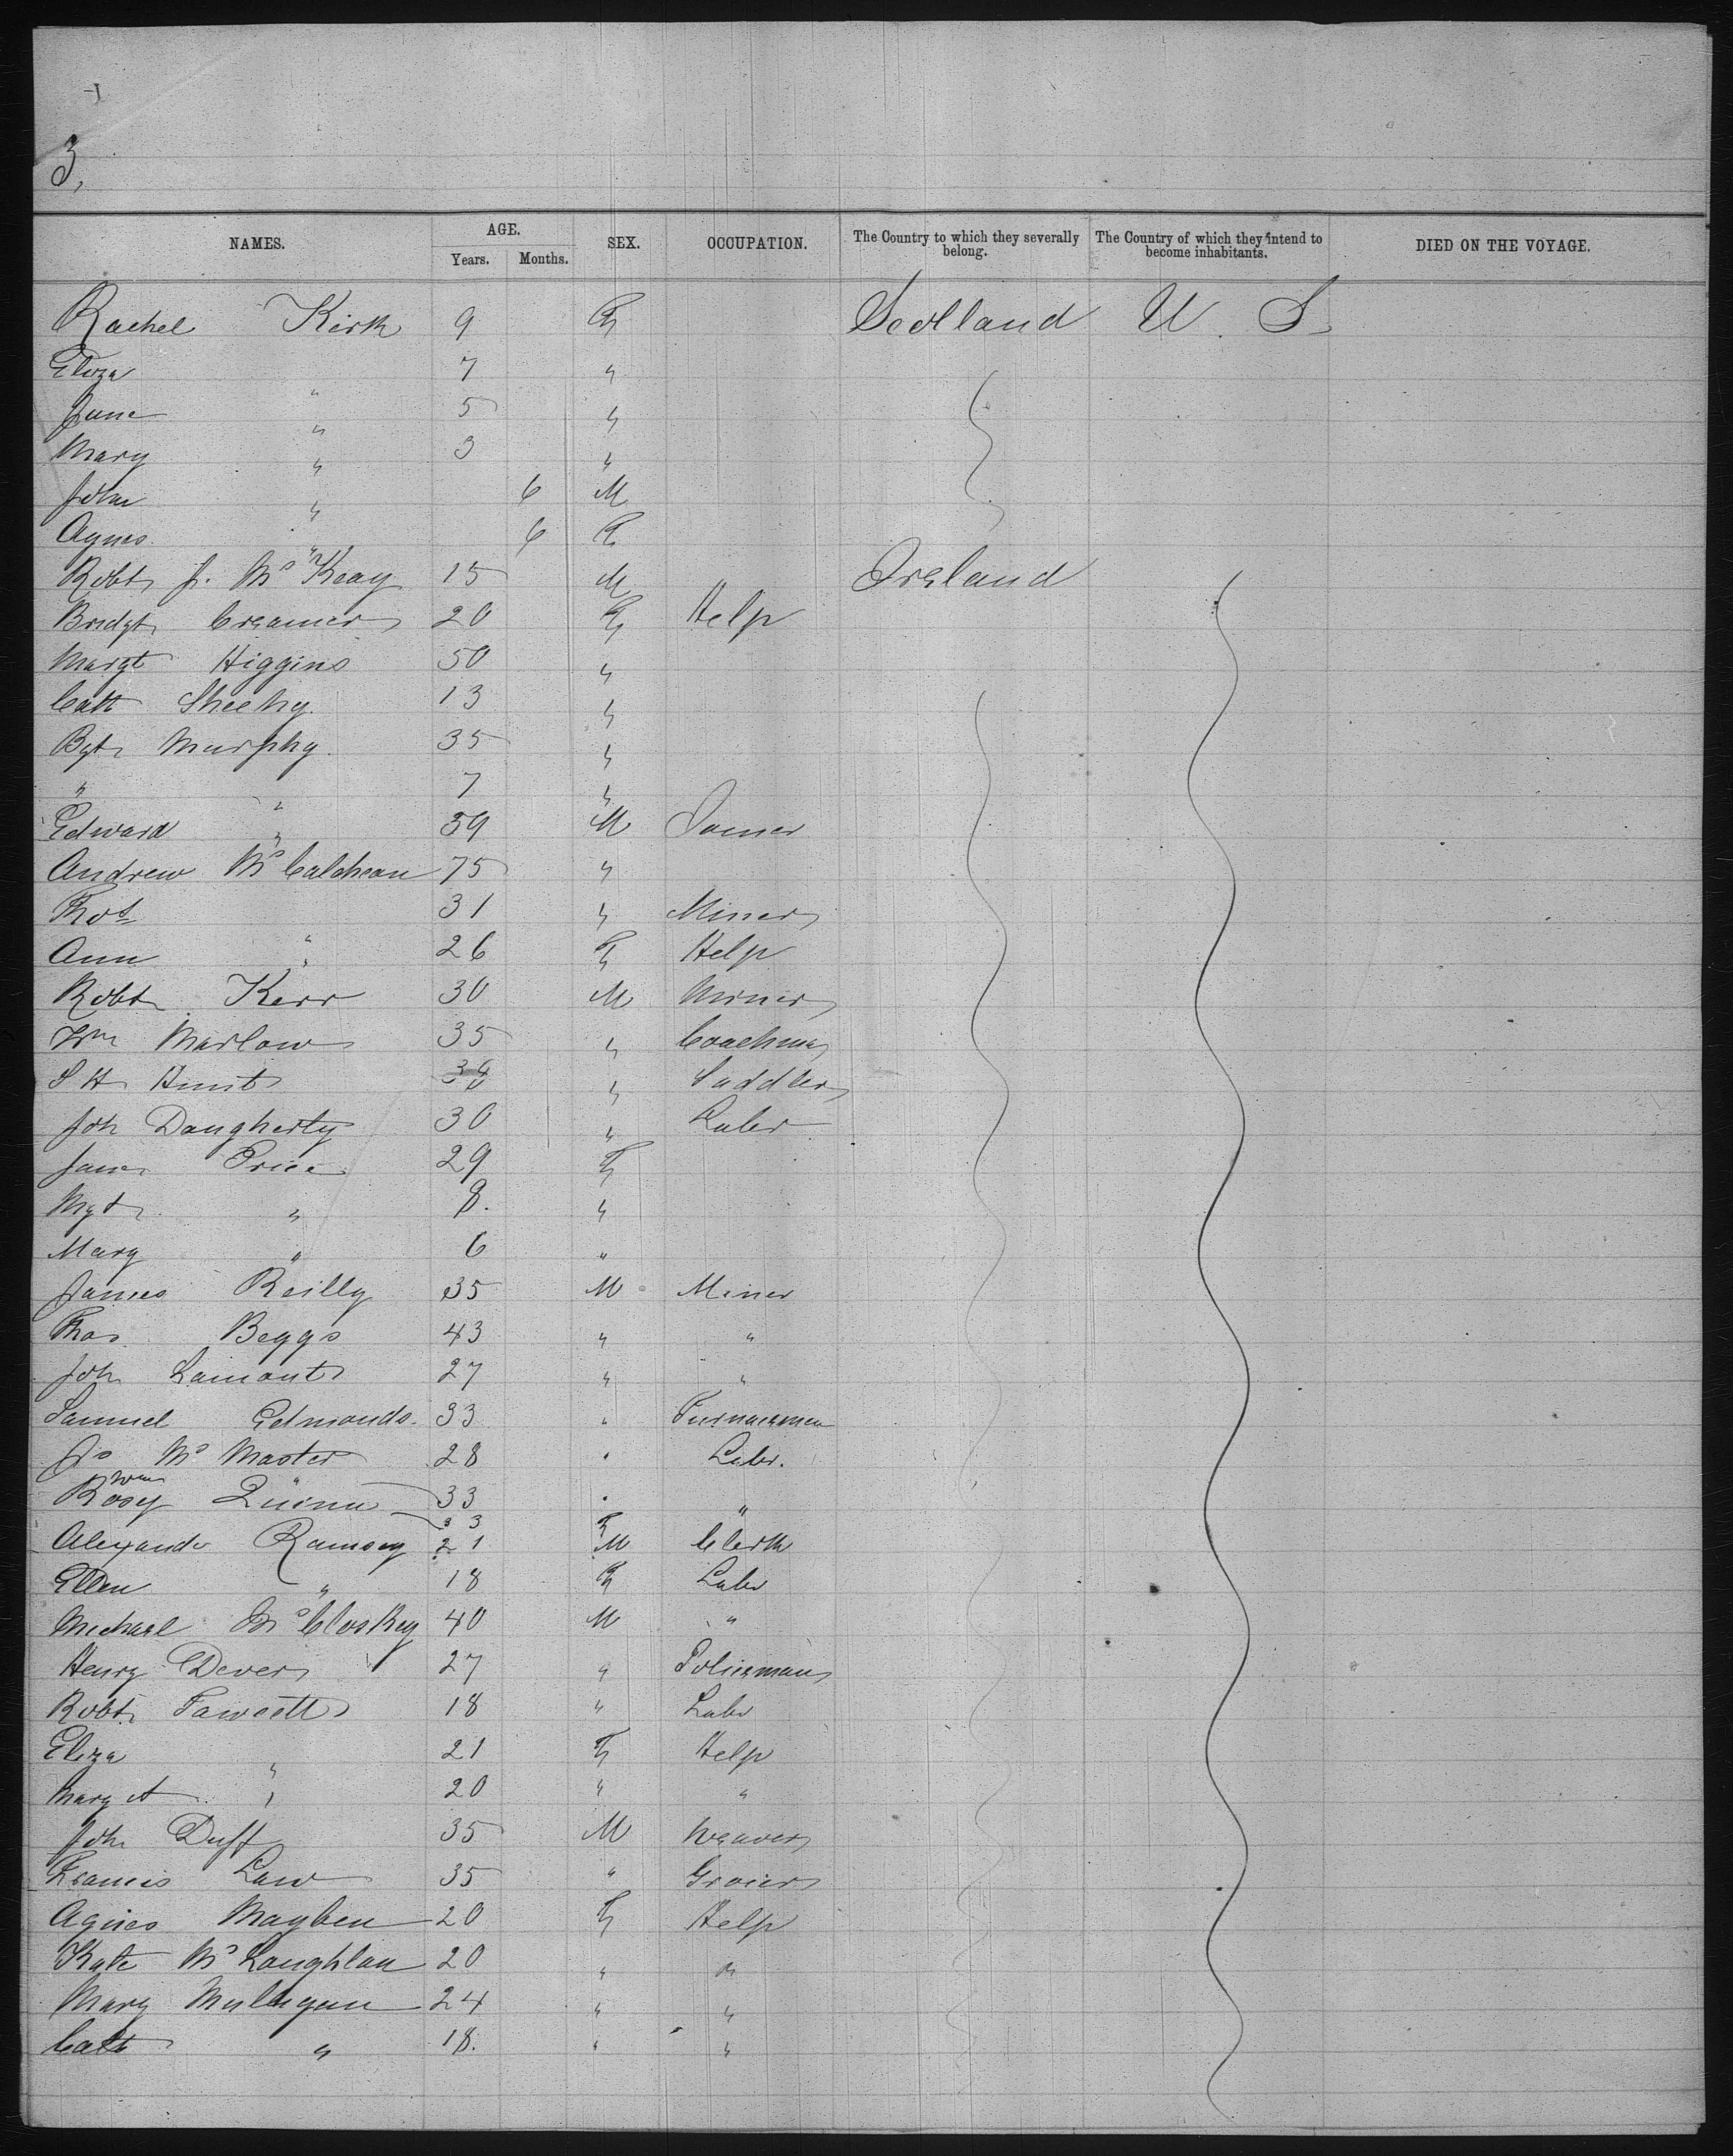 3,
NAMES. AGE. SEX. OCCUPATION. The Country to which they severally belong. The Country of which they intend to become inhabitants. DIED ON THE VOYAGE.
Years. Months.
Rachel Kirk 9 F Scotland U. S.
Eliza " 7 "
Jane " 5 "
Mary " 3 "
John " 6 M
Agnes " 6 F
Robt J. Mc Keay 15 M Ireland
Bridgt Creamer 20 F Help
Margt Higgins 50 "
Cath Sheehy. 13 "
Bgt Murphy. 35 "
" " 7 "
Edward " 39 M
Andrew Mc 75 "
Thos " 31 " Miner
Ann " 26 F Help
Robt Kerr 30 M Miner
Wm Marlow 35 " Coachman
S H Hunt " Saddler
Joh Daugherty 30 " Labr
Jane Price 29 F
Mgt " 8. "
Mary " 6 "
James Reilly 35 M Miner
Thos Beggs 43 " "
Joh Lamont 27 " "
Samuel Edmonds. 33 " Furnaceman
Jas Mc Master 28 " Labr.
Wm Quinn 33 " "
Rosey " 33 F
Alexander Ramsey 21 M Clerk
Ellen " 18 F Labr
Michael Mc Closkey 40 M "
Henry Dever 27 " Policeman
Robt Fawcett 18 " Labr
Eliza " 21 F Help
Mary A " 20 " "
Joh Duff 35 M Weaver
Francis Law 35 " Grocer
Agnes Mayben 20 F Help
Kate Mc Laughlan 20 " "
Mary Mulligan 24 " "
Cath " 18. " "